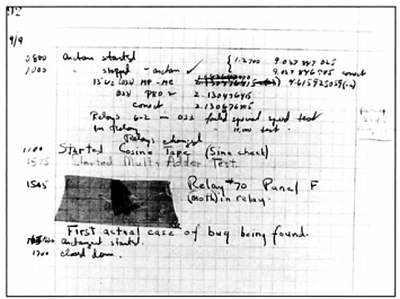 92
9/9
0800 Antan started { 1.2700 9.037 847 025
1000 " stopped - antan ✓ 9.037 846 995 correct
13"uc (032) MP - MC
(033) PRO.2 2.130476415
correct 2.130676415
Relays 6-2 in 033 failed special speed test
in relay " 10.000 test.
Relays changed
1100 Started Cosine Tape (Sine check)
1525 Started Mult+Adder Test.
1545 Relay #70 Panel F
(moth) in relay.
First actual case of bug being found.
antangent started.
1700 closed down.